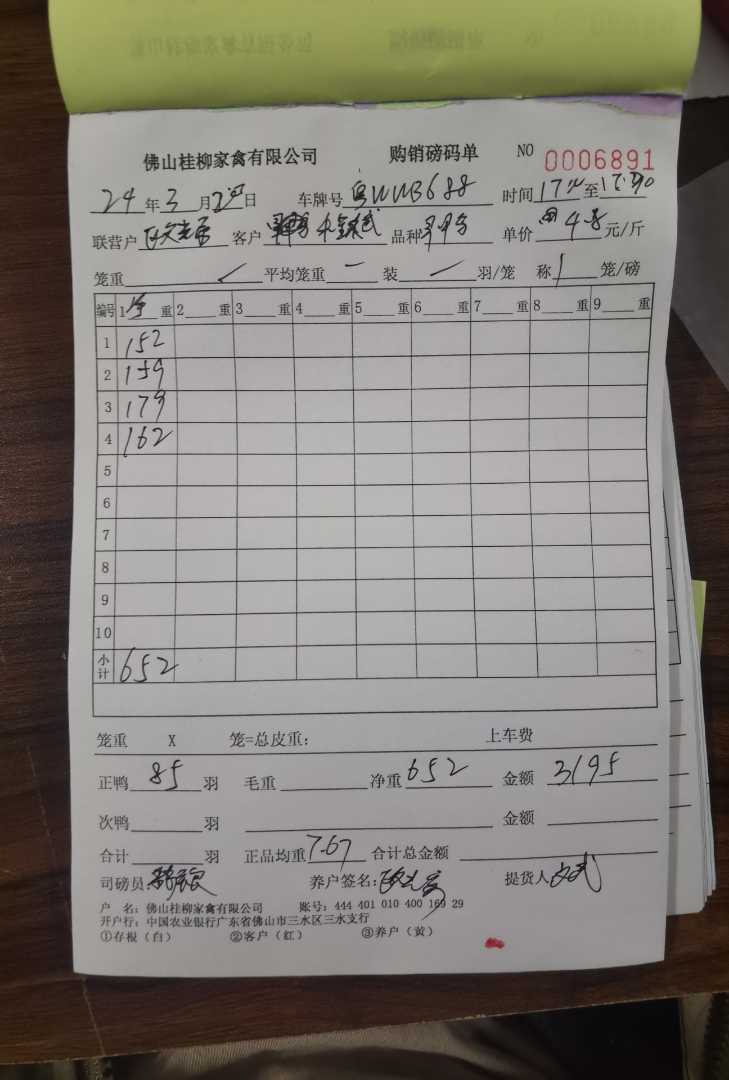 佛山桂柳家禽有限公司 购销磅码单 NO 0006891
24 年 3 月 日 车牌号 时间 至
联营户 客户 品种 单价 元/斤
笼重 平均笼重 一 装 羽/笼 称 1 笼/磅
编号 1 净 重 2 重 3 重 4 重 5 重 6 重 7 重 8 重 9 重
1 152
2 159
3 179
4 162
5
6
7
8
9
10
小计 652
笼重 X 笼=总皮重: 上车费
正鸭 85 羽 毛重 净重 652 金额 3195
次鸭 羽 金额
合计 羽 正品均重 7.67 合计总金额
司磅员 养户签名: 提货人
户 名: 佛山桂柳家禽有限公司 账号: 444 401 010 400 169 29
开户行: 中国农业银行广东省佛山市三水区三水支行
①存根(白) ②客户(红) ③养户(黄)